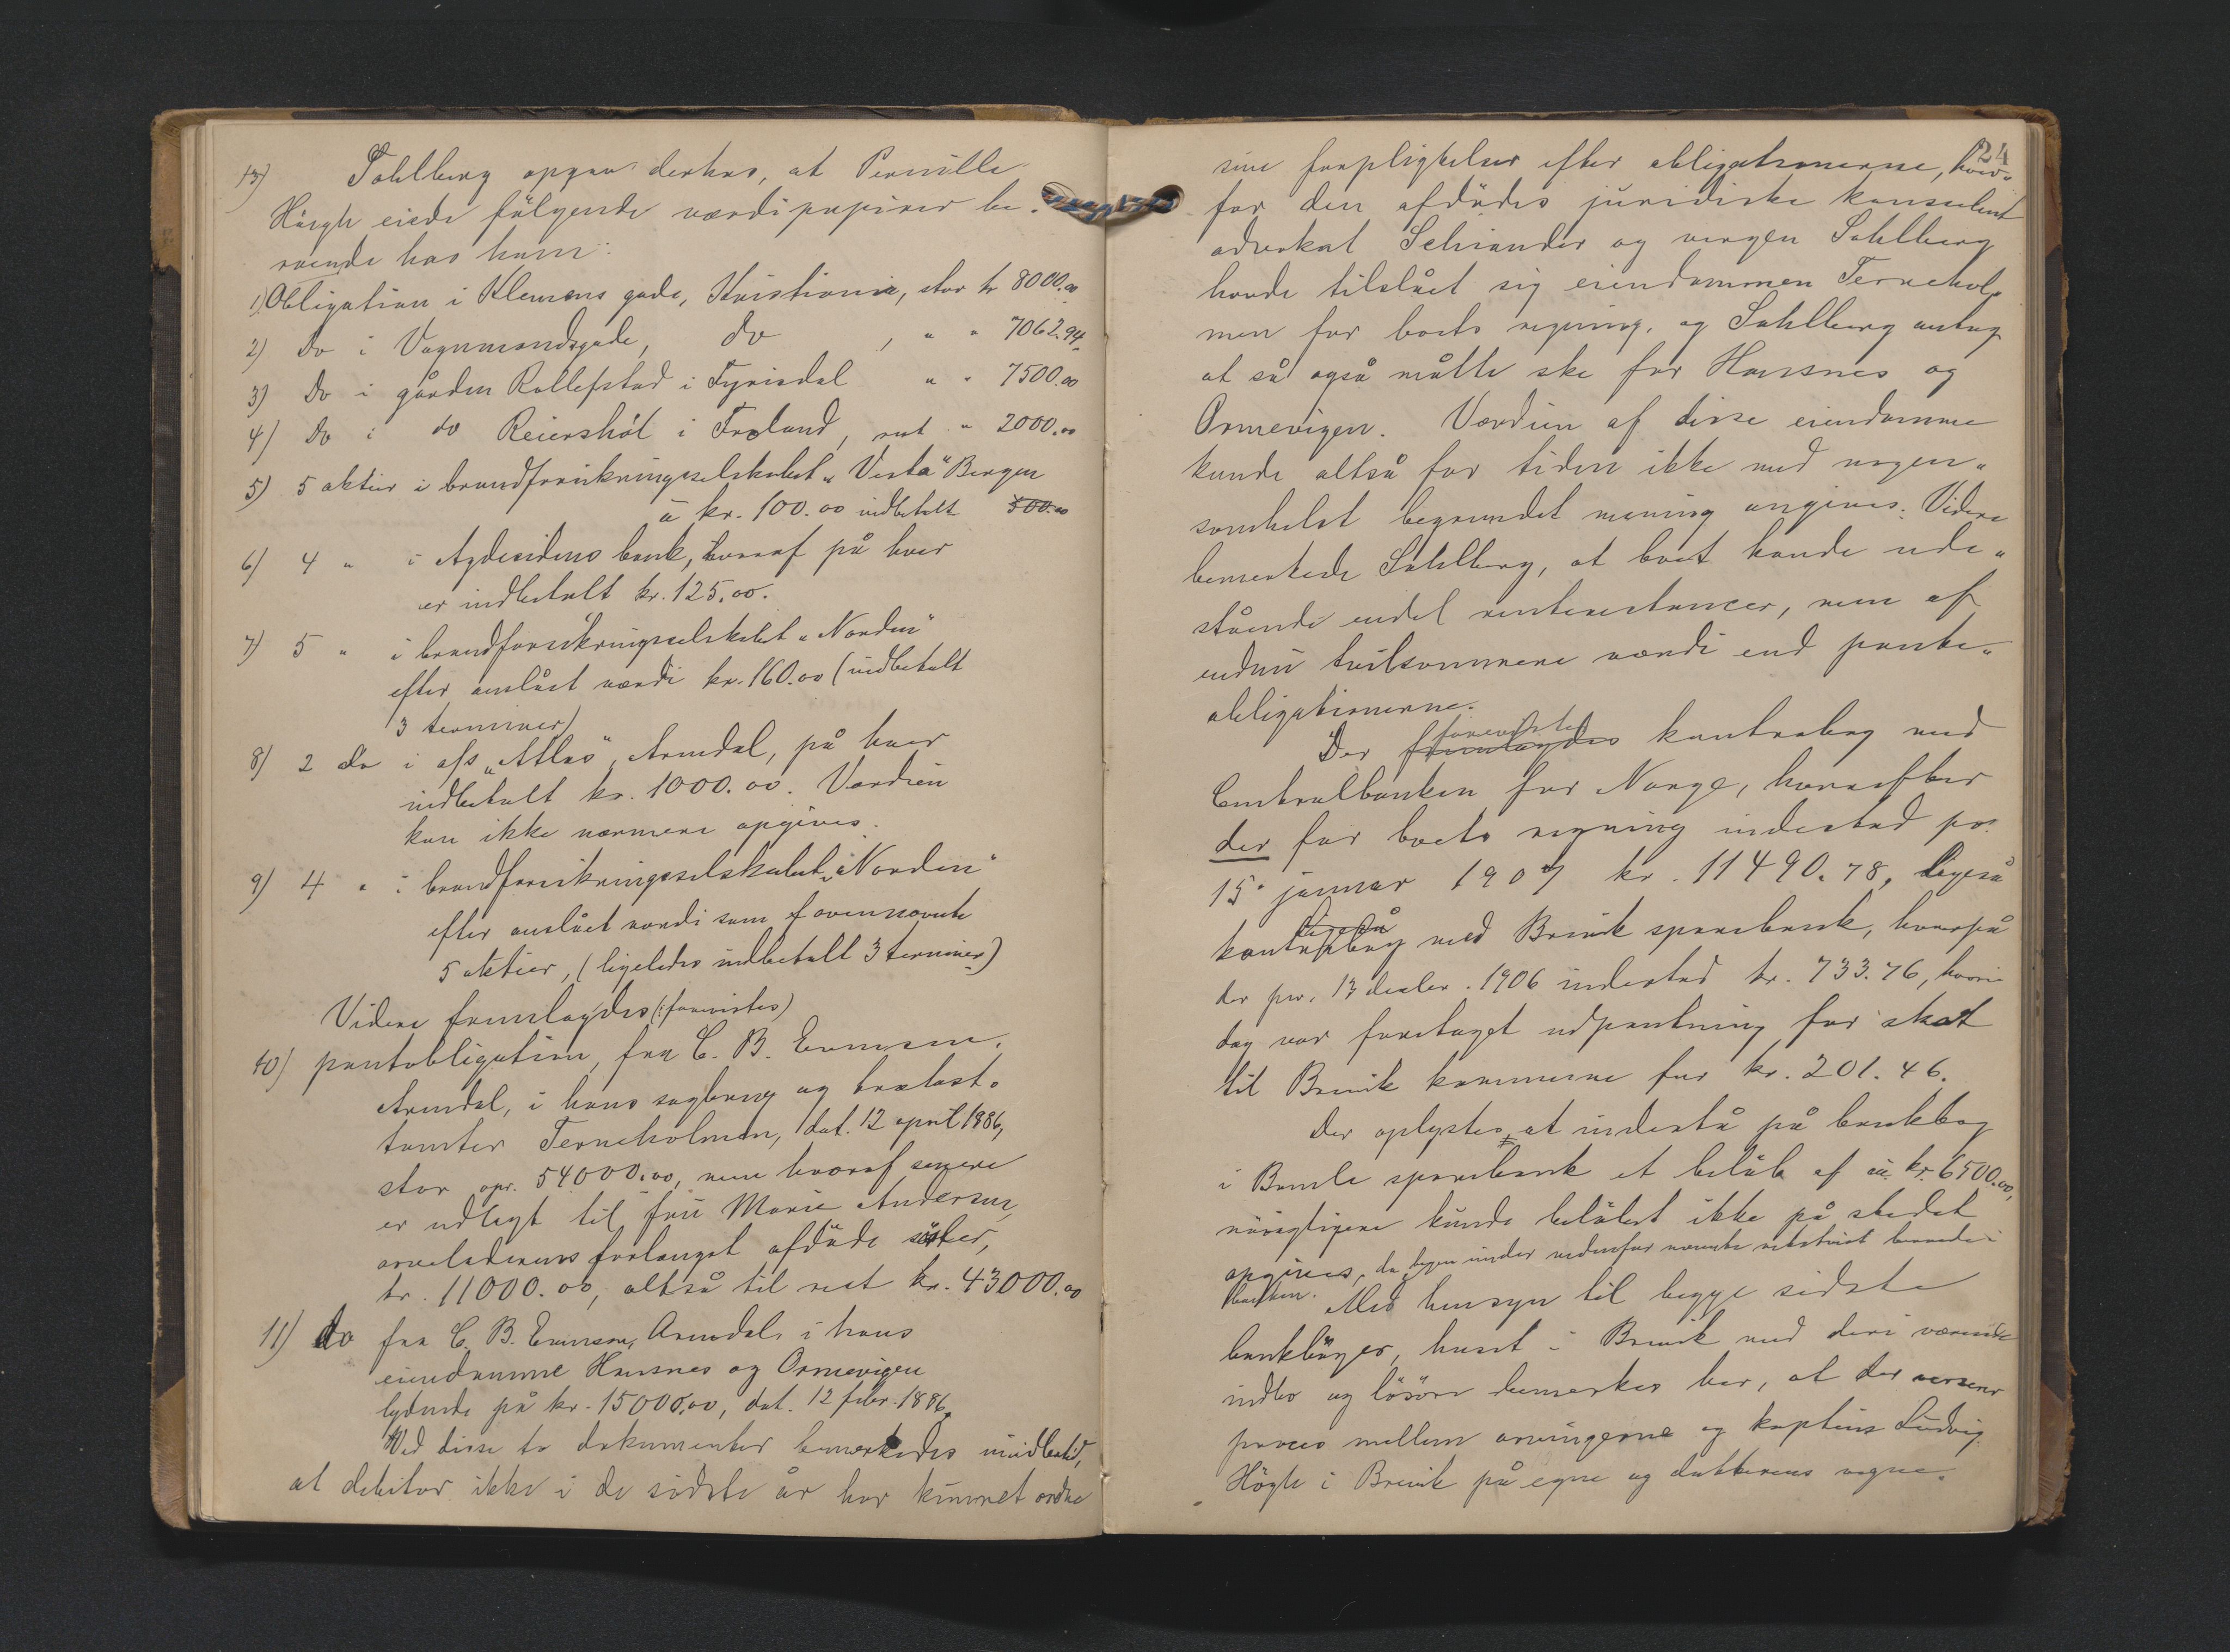 13) Sahlberg opgav derhos, at Pernille
Høegh eiede følgende værdipapirer be-
roende hos ham:
1) Obligation i Klemens gade, Kristiania, stor kr 8000.00
2) Do i Vognmandsgade, do , " " 7062.94
3) Do i gården Rollefstad i Fyrisdal " " 7500.00
4) Do i do Reiershöl i Froland, rest " 2000.00
5) 5 aktier i brandforsikringsselskabet "Vesta" Bergen
à kr. 100.00 indbetalt 500.00
6) 4 " i Agdesidens bank, hvoraf på hver
er indbetalt kr. 125.00.
7) 5 " i brandforsikringsselskabet "Norden"
efter anslået værdi kr. 160.00 (indbetalt
3 terminer)
8) 2 do i a/s "Atlas", Arendal, på hver
indbetalt kr. 1000.00. Værdien
kan ikke nærmere opgives.
9) 4 " i brandforsikringsselskabet "Norden"
efter anslået værdi som f ovennævnte
5 aktier, (ligeledes indbetalt 3 terminer)
Videre fremlagdes (: forevistes)
10) pantobligation, fra C. B. Evensen,
Arendal, i hans sagbrug og trælast-
tomter Terneholmen, dat. 12 april 1886,
stor opr. 54000.00, men hvoraf senere
er udlagt til frü Marie Andersen,
arveladerens forlængst afdöde söster,
kr. 11000.00, altså til rest kr. 43000.00
11) do fra C. B. Evensen, Arendal i hans
eiendomme Hansnes og Ormevigen
lydende på kr. 15000,00, dat. 12 febr. 1886.
Ved disse to dokumenter bemerkedes imidlertid,
at debitor ikke i de sidste år har kunnet ordne
24
sine forpligtelser efter obligationerne, hvor-
for den afdödes juridiske konsulent
advokat Schiander og vergen Sahlberg
havde tilslået sig eiendommen Ternehol-
men for boets regning, og Sahlberg antog
at så også måtte ske for Hansnes og
Ormevigen. Værdien af disse eiendomme
kunde altså for tiden ikke med nogen-
somhelst begrundet mening angives. Videre
bemerkede Sahlberg, at boet havde ude-
stående endel renterestancer, men af
endnu tvilsommere værdi end pante-
obligationerne.
forevistes
Der fremlagdes kontrabog med
Centralbanken for Norge, hvorefter
der for boets regning indestod pr.
15. januar 1907 kr. 11490.78, ligeså
Ligeså
kontrabog med Brevik sparebank, hvorpå
der pr. 13 decbr. 1906 indestod kr. 733.76, hvori
dag var foretaget udpantning for skat
til Brevik kommune for kr. 201.46.
Der oplystes, at indestå på bankbog
i Bamle sparebank et belöb af ca. kr. 6500.00,
nöiagtigere kunde belöbet ikke på stedet
opgives, da bogen under nedenfor nævnte retstvist beroede i
banken. Med hensyn til begge sidste
bankböger, huset i Brevik med deri værende
indbo og lösöre bemerkes her, at der verserer
proces mellem arvingerne og kaptein Ludvig
Högh i Brevik på egne og datterens vegne.